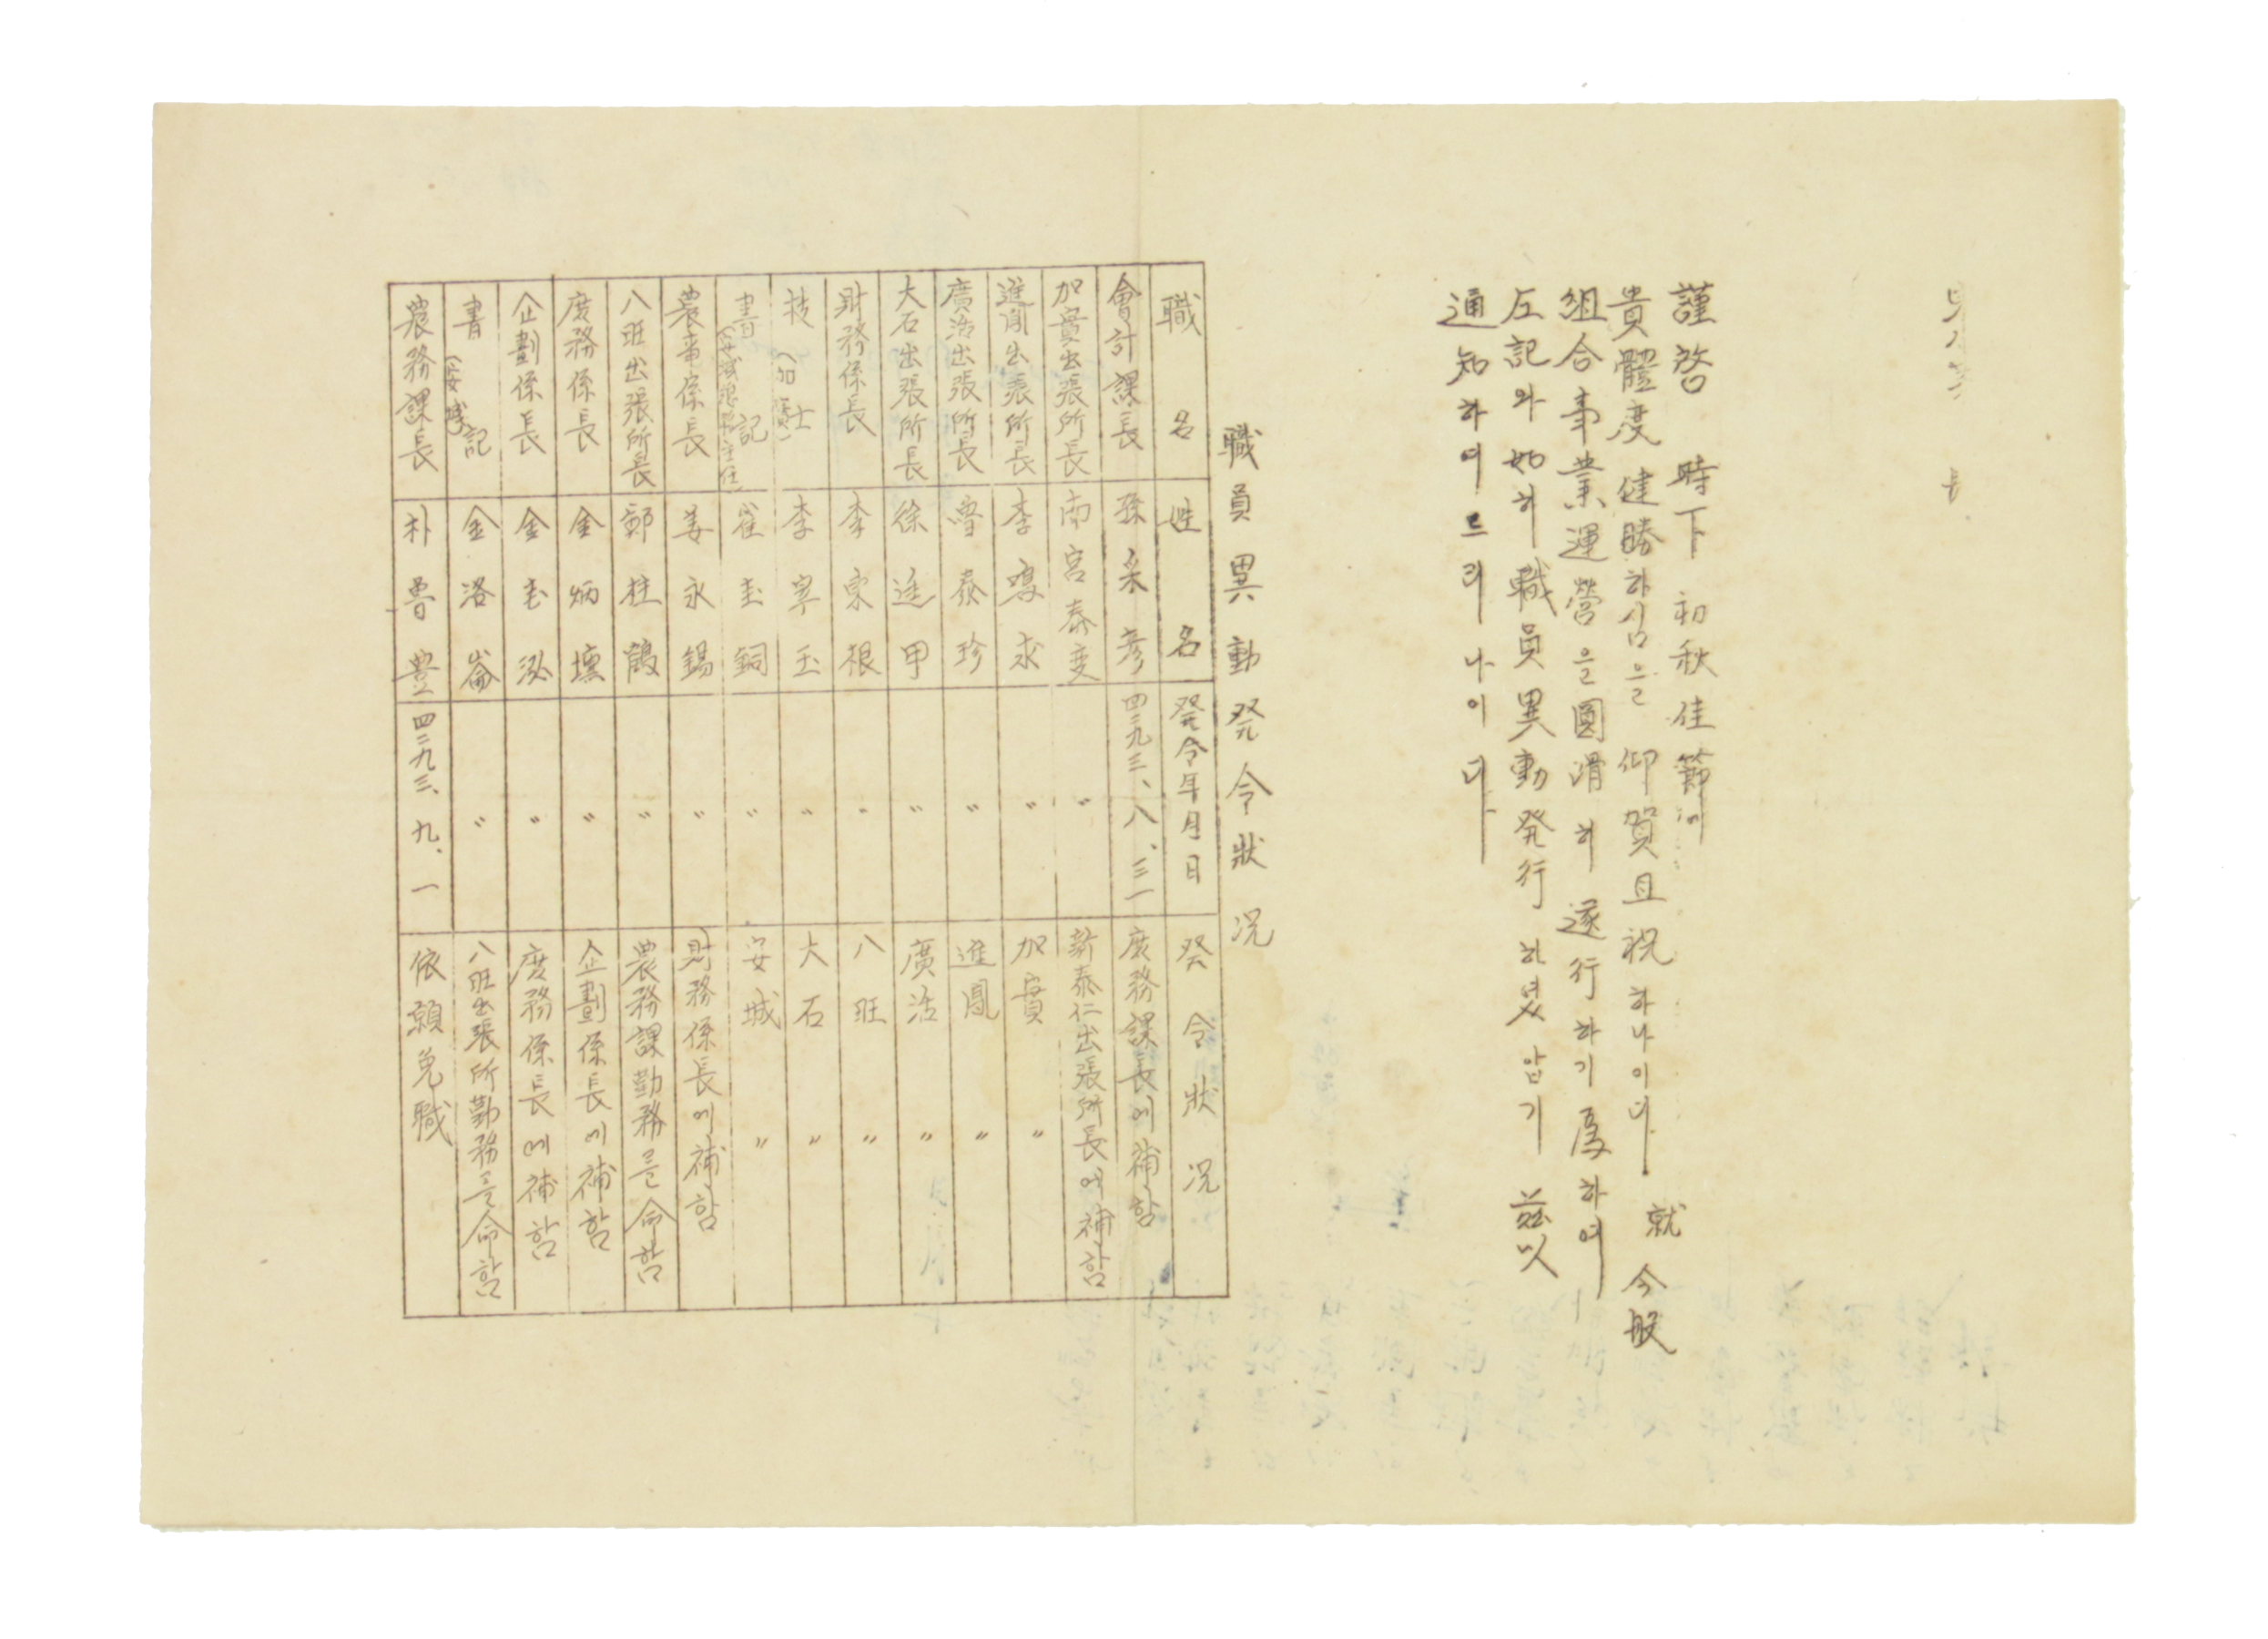 謹啓 時下 初秋佳節에
貴體度 健勝하심을 仰賀且祝하나이다. 就 今般
組合事業運營을 圓滑히 遂行하기 爲하여
左記와 如히 職員異動発行 하였압기 玆以
通知하여 드리나이다
職員異動発令狀況
職名 姓名 発令年月日 発令狀況
會計課長 孫釆彦 四二九三、八、三一 庶務課長에 補함
加實出張所長 南宮泰斐 〃 新泰仁出張所長에 補함
進鳳出張所長 李鳴求 〃 加實 〃
廣活出張所長 曺泰珍 〃 進鳳 〃
大石出張所長 徐廷甲 〃 廣活 〃
財務係長 李宗根 〃 八旺 〃
技士(加實) 李宰玉 〃 大石 〃
書記 崔圭銅 〃 安城 〃
農事係長 姜永錫 〃 財務係長에 補함
八旺出張所長 鄭柱鶴 〃 農務課勤務를 命함
庶務係長 金炳壎 〃 企劃係長에 補함
企劃係長 金圭泓 〃 庶務係長에 補함
書記(安城) 金洛崙 〃 八旺出張所勤務를 命함
農務課長 朴魯豊 四二九三、九、一 依願免職